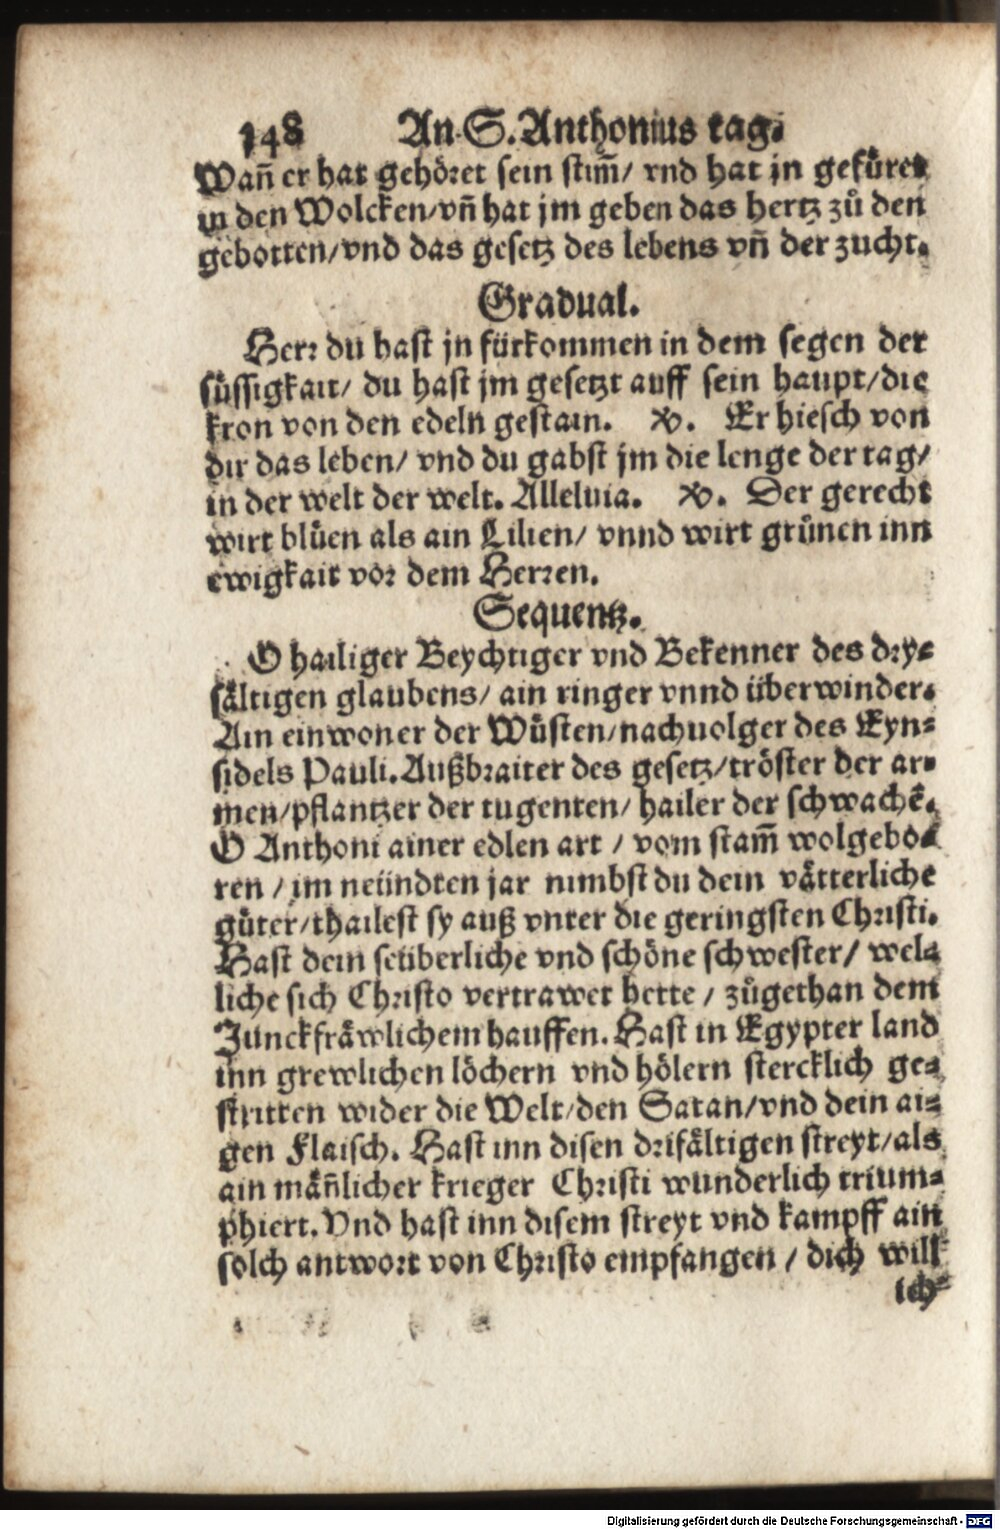 148 An S. Anthonius tag.
Wañ er hat gehöret sein stim̃/ vnd hat jn gefüret
in den Wolcken/vñ hat jm geben das hertz zů den
gebotten/vnd das gesetz des lebens vñ der zucht.
Gradual.
Herr du hast jn fürkommen in dem segen der
süssigkait/ du hast jm gesetzt auff sein haupt/die
kron von den edeln gestain. ℣. Er hiesch von
dir das leben/ vnd du gabst jm die lenge der tag/
in der welt der welt. Alleluia. ℣. Der gerecht
wirt blüen als ain Lilien/ vnnd wirt grünen inn
ewigkait vor dem Herren.
Sequentz.
O hailiger Beychtiger vnd Bekenner des dry-
fältigen glaubens/ ain ringer vnnd überwinder.
Ain einwoner der Wüsten/nachuolger des Eyn-
sidels Pauli. Außbraiter des gesetz/tröster der ar-
men/pflantzer der tugenten/ hailer der schwachē.
O Anthoni ainer edlen art / vom stam̃ wolgebo-
ren / im neündten jar nimbst du dein vätterliche
güter/thailest sy auß vnter die geringsten Christi.
Hast dein seüberliche vnd schöne schwester/ wel-
liche sich Christo vertrawet hette / zůgethan dem
Junckfräwlichem hauffen. Hast in Egypter land
inn grewlichen löchern vnd hölern stercklich ge-
stritten wider die Welt/den Satan/vnd dein ai-
gen Flaisch. Hast inn disen drifältigen streyt/als
ain mäñlicher krieger Christi wunderlich trium-
phiert. Vnd hast inn disem streyt vnd kampff ain
solch antwort von Christo empfangen / dich will
ich
Digitalisierung gefördert durch die Deutsche Forschungsgemeinschaft - DFG